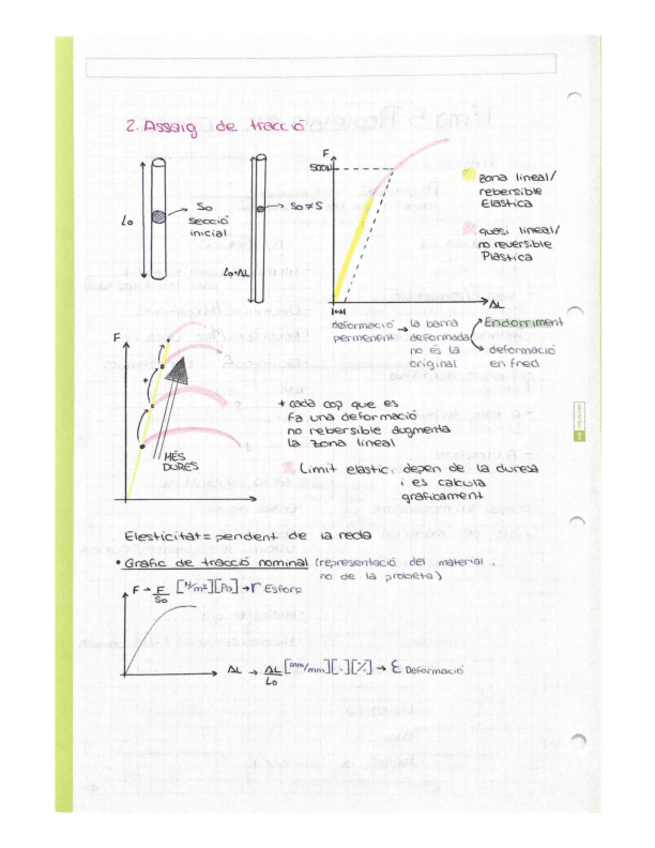 2. Assaig de tracció
Lo
So
secció
inicial
Lo+ΔL
So≠S
F
500N
ΔL
zona lineal/
rebersible
Elastica
quasi lineal/
no reversible
Plastica
deformació
permenent
→ la barra
deformada
no és la
original
Enduriment
deformació
en fred
F
MÉS
DURES
* cada cop que es
fa una deformació
no rebersible augmenta
la zona lineal
Limit elastic: depen de la duresa
i es calcula
graficament
Elesticitat = pendent de la recta
• Grafic de tracció nominal (representació del material,
no de la probeta)
F → F/So [N/m²][Pa] → σ Esforç
ΔL → ΔL/Lo [mm/mm][-][%] → ε Deformació